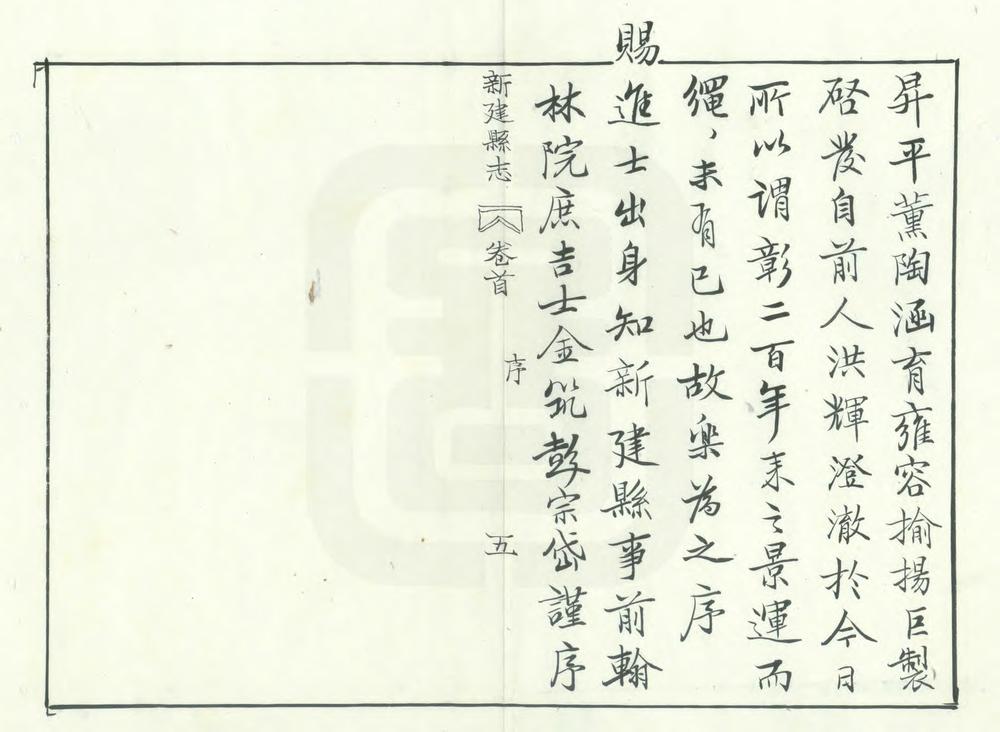 昇平薰陶涵育雍容揄揚巨製
啓發自前人洪輝澄澈扵今日
所以谓彰二百年来之景運而
繩〻未有已也故樂為之序
賜進士出身知新建縣事前翰
林院庶吉士金筑彭宗岱謹序
新建縣志 卷首 序 五